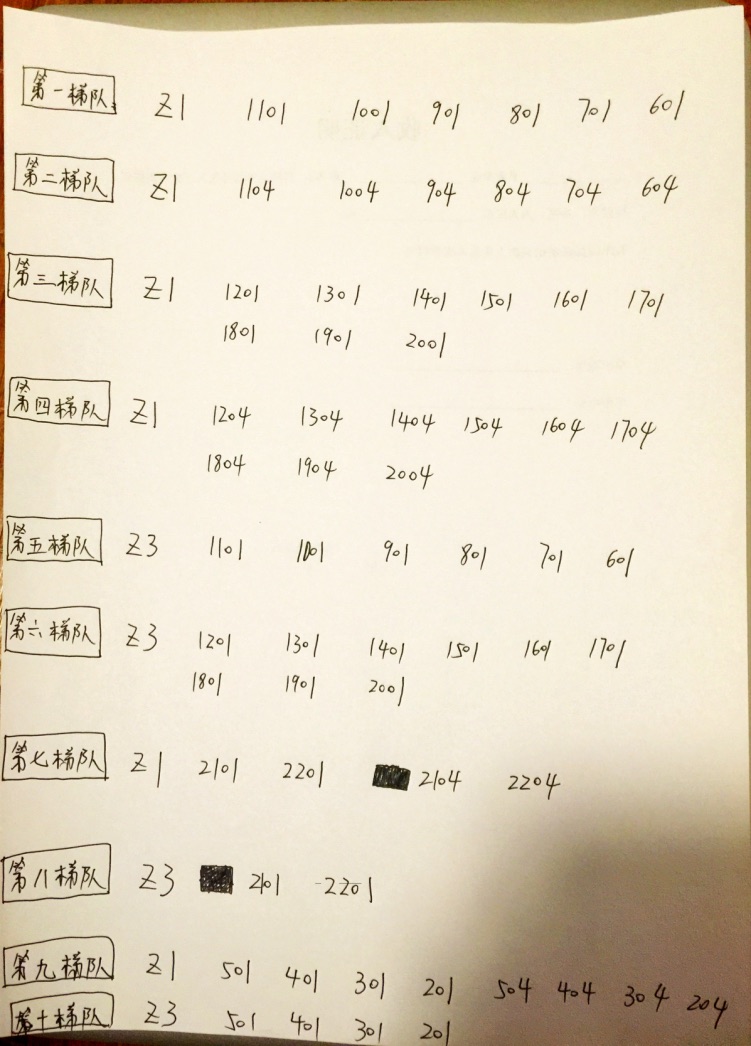 第一梯队 Z1 1101 1001 901 801 701 601
第二梯队 Z1 1104 1004 904 804 704 604
第三梯队 Z1 1201 1301 1401 1501 1601 1701
1801 1901 2001
第四梯队 Z1 1204 1304 1404 1504 1604 1704
1804 1904 2004
第五梯队 Z3 1101 1001 901 801 701 601
第六梯队 Z3 1201 1301 1401 1501 1601 1701
1801 1901 2001
第七梯队 Z1 2101 2201 2104 2204
第八梯队 Z3 2101 2201
第九梯队 Z1 501 401 301 201 504 404 304 204
第十梯队 Z3 501 401 301 201